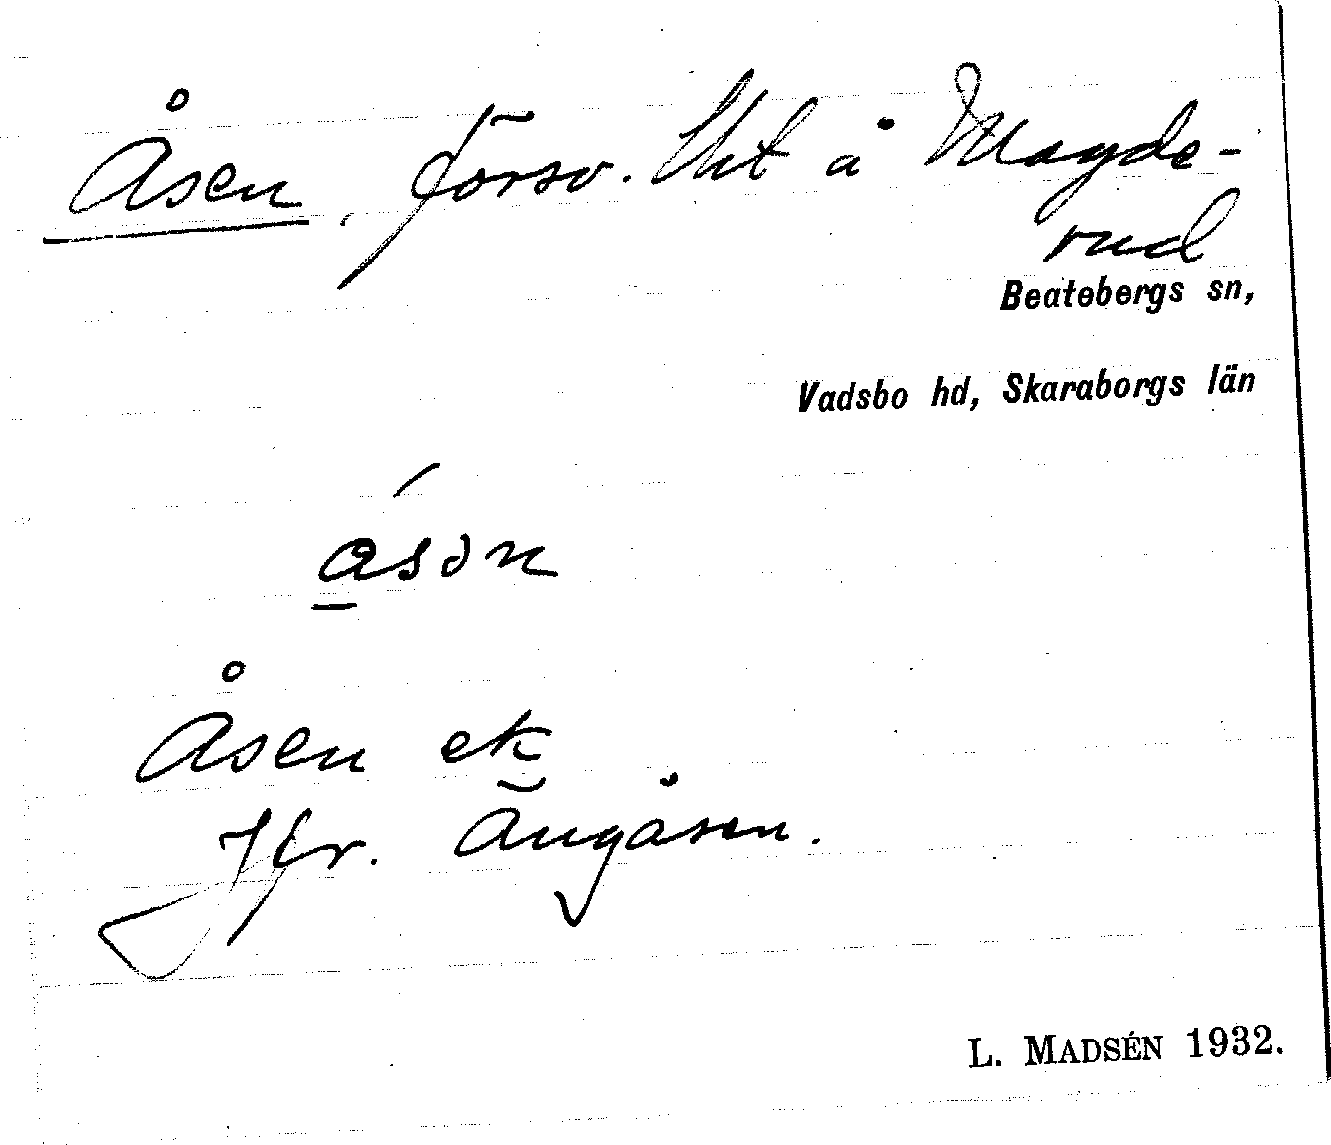 Åsen, försv. tht å Magde-
rud
Beatebergs sn,
Vadsbo hd, Skaraborgs län
åsən
Åsen ek
Jfr. Ängåsen.
L. MADSÉN 1932.